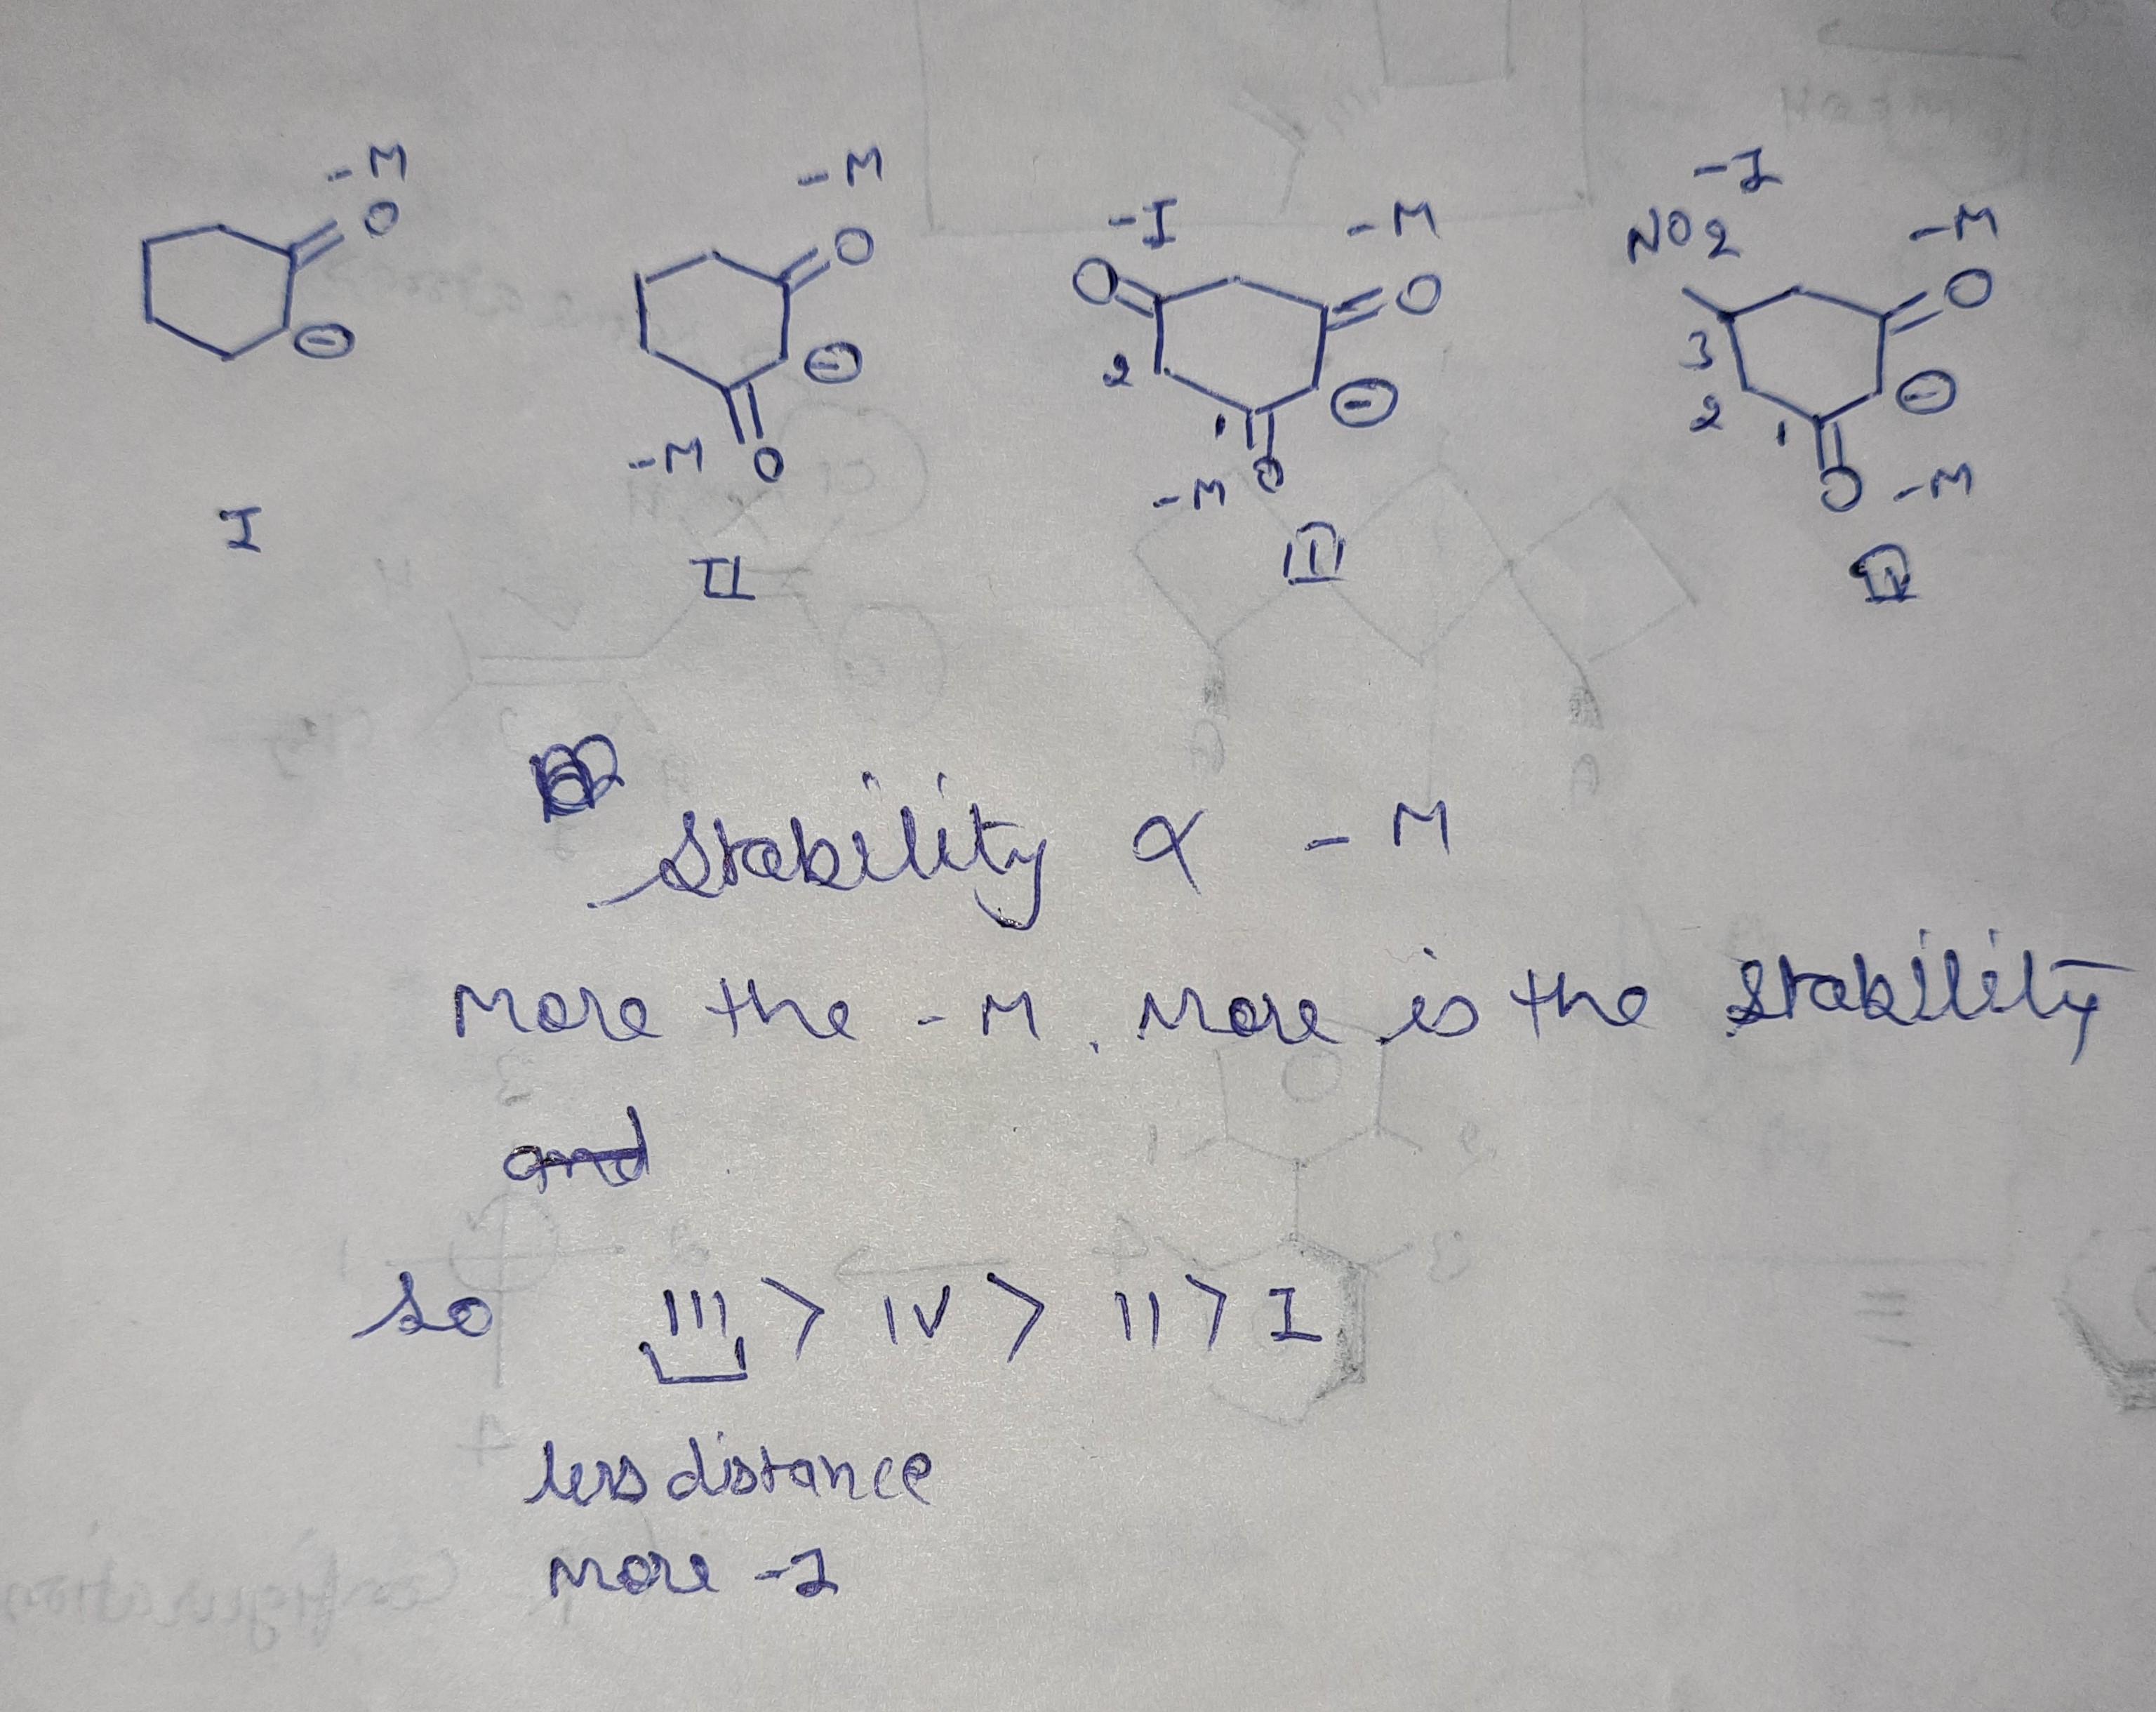 -M
O
⊖
I
-M
O
⊖
-M O
II
-I
-M
O
O
2
1
⊖
-M O
III
-I
NO2
-M
O
3
2
1
⊖
O -M
IV
Stability ∝ -M
More the -M. More is the stability
and
so III > IV > II > I
less distance
more -I